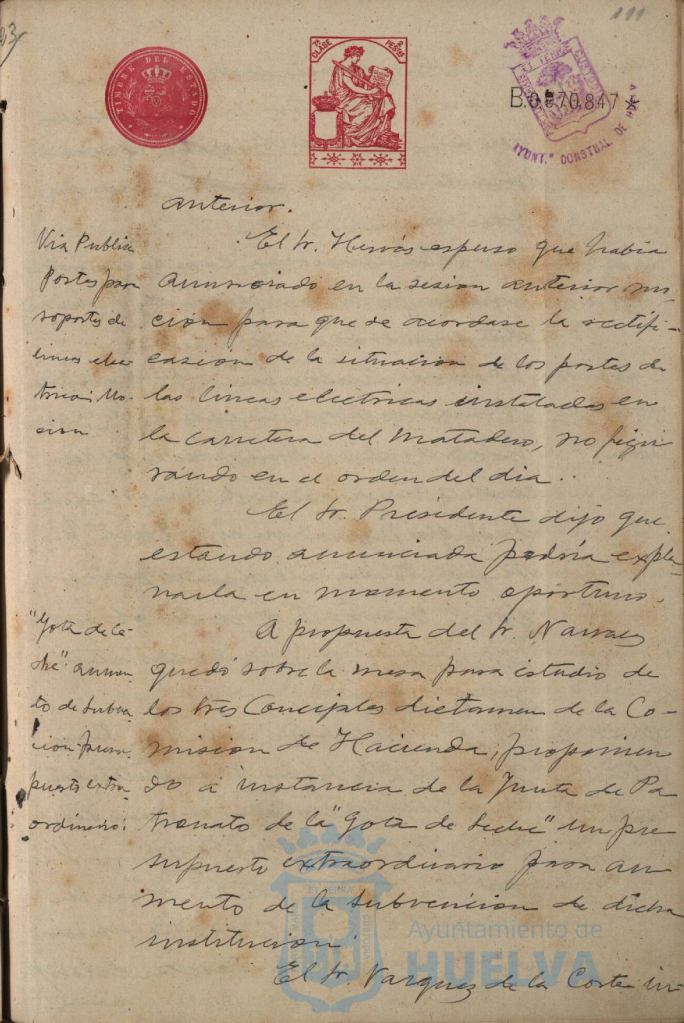 111
TIMBRE DEL ESTADO
7ª CLASE
2 PESETAS
B.0.870.847 *
AYUNT.º CONSTNAL DE
anterior.
Via Publica
Postes para
soportes de
lineas elec
tricas Mo-
cion
El Sr. Hervás espuso que habia
anunciado en la sesion anterior mo-
cion para que se acordase la rectifi-
casion de la situacion de los postes de
las lineas electricas instaladas en
la carretera del Matadero, no figu
rando en el orden del dia.
El Sr. Presidente dijo que
estando anunciada podria expla-
narla en momento oportuno.
"Gota de le-
che" aumen
to de subven
cion presu
puesto extra
ordinario.
A propuesta del Sr.
quedó sobre la mesa para estudio de
los tres Conceptos dictamen de la Co-
mision de Hacienda, proponien
do a instancia de la Junta de Pa
tronato de la "Gota de Leche" un pre
supuesto extraordinario para au
mento de la subvencion de dicha
institucion.
El Sr. Vazquez de la Corte in-
Ayuntamiento de
HUELVA